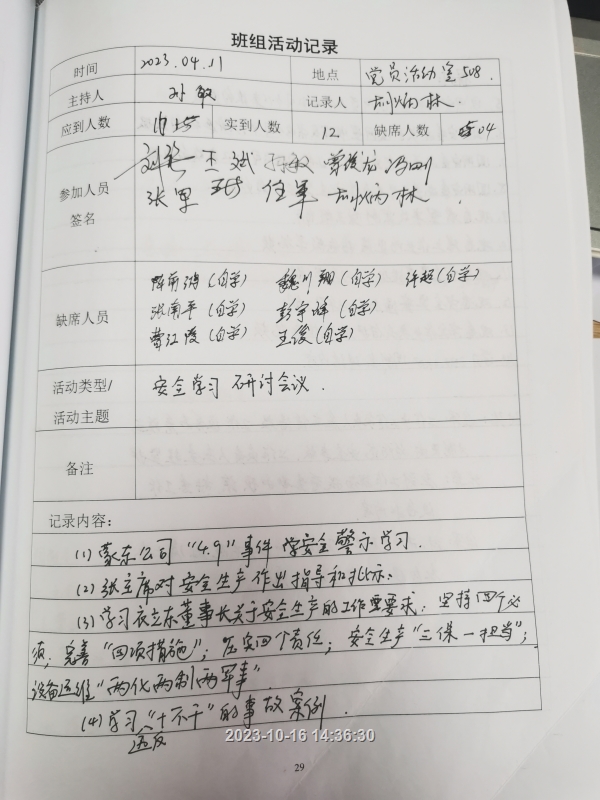 班组活动记录
时间 2023.04.11 地点 党员活动室508.
主持人 孙敏 记录人 林.
应到人数 实到人数 12 缺席人数 04
参加人员签名 王斌 孙敏
张军 任军 林
缺席人员 (自学) 魏川翔(自学) 许超(自学)
洪南平(自学) 彭宇峰(自学)
曹红霞(自学) 王俊(自学)
活动类型/活动主题 安全学习 研讨会议.
备注
记录内容:
(1)蒙东公司"4.9"事件 学安全警示学习.
(2)张主席对安全生产作出指导和批示.
(3)学习衣立东董事长关于安全生产的工作重要求:坚持四个必
须;完善"四项措施";压实四个责任;安全生产"三保一担当";
设备运维"两化两制两军事".
(4)学习"十不干"的事故案例.
违反
2023-10-16 14:36:30
29